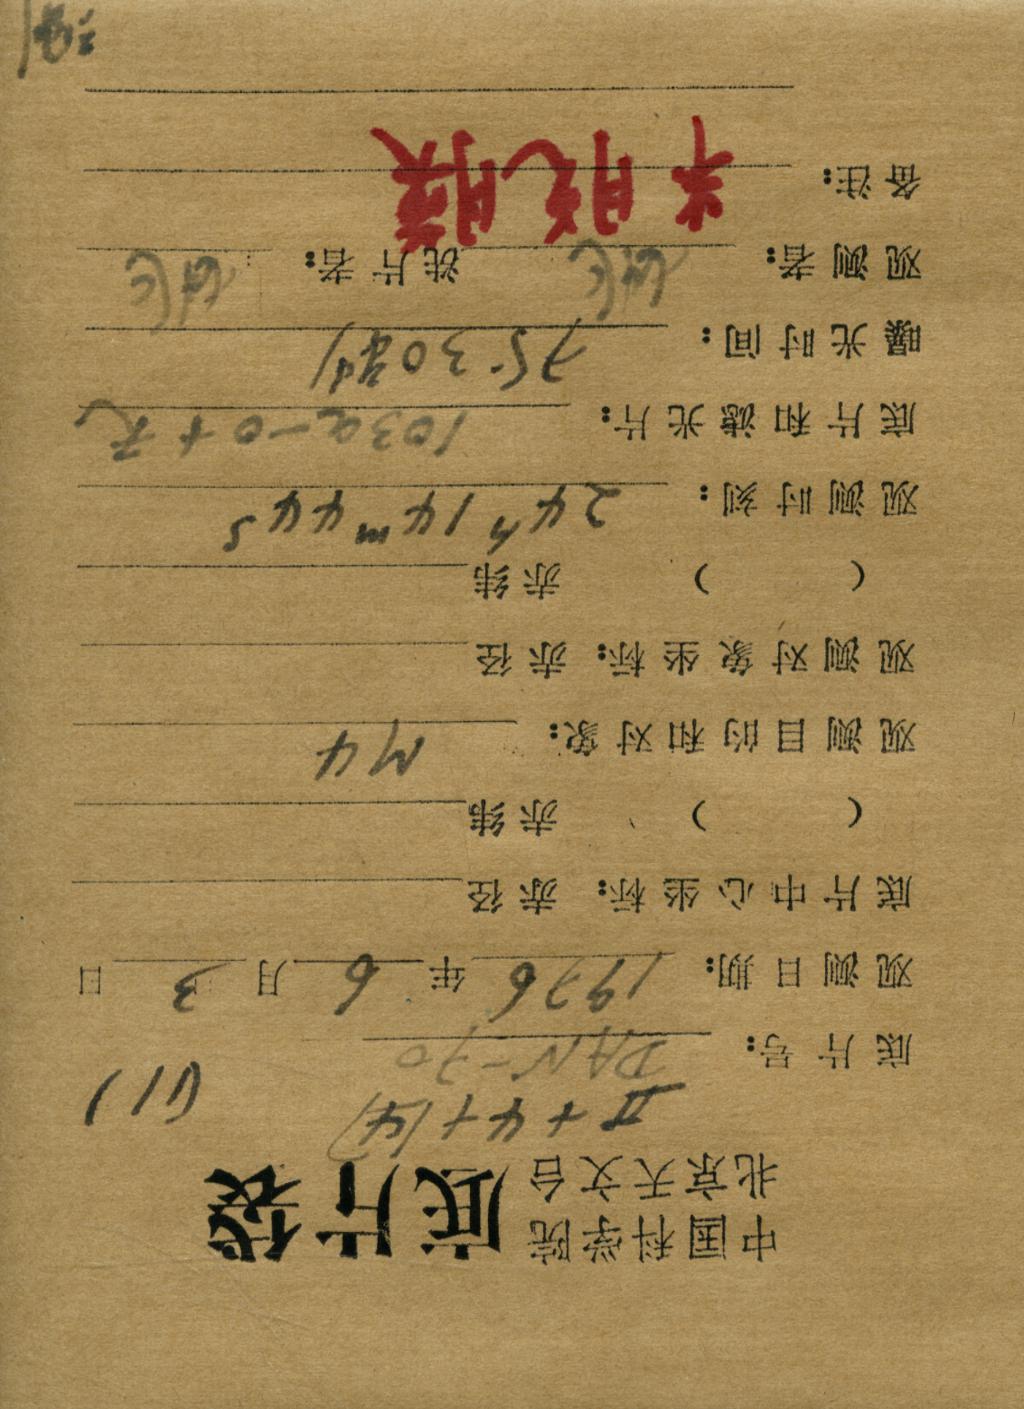 中国科学院
北京天文台 底片袋
II+4+(4) (11)
底片号: DAN-70
观测日期: 1976年 6月 3日
底片中心坐标: 赤径
( ) 赤纬
观测目的和对象: M4
观测对象坐标: 赤径
( ) 赤纬
观测时刻: 24h 14m 44s
底片和滤光片: 103a-O+无
曝光时间: 30
观测者: 洗片者:
备注: 未脱膜